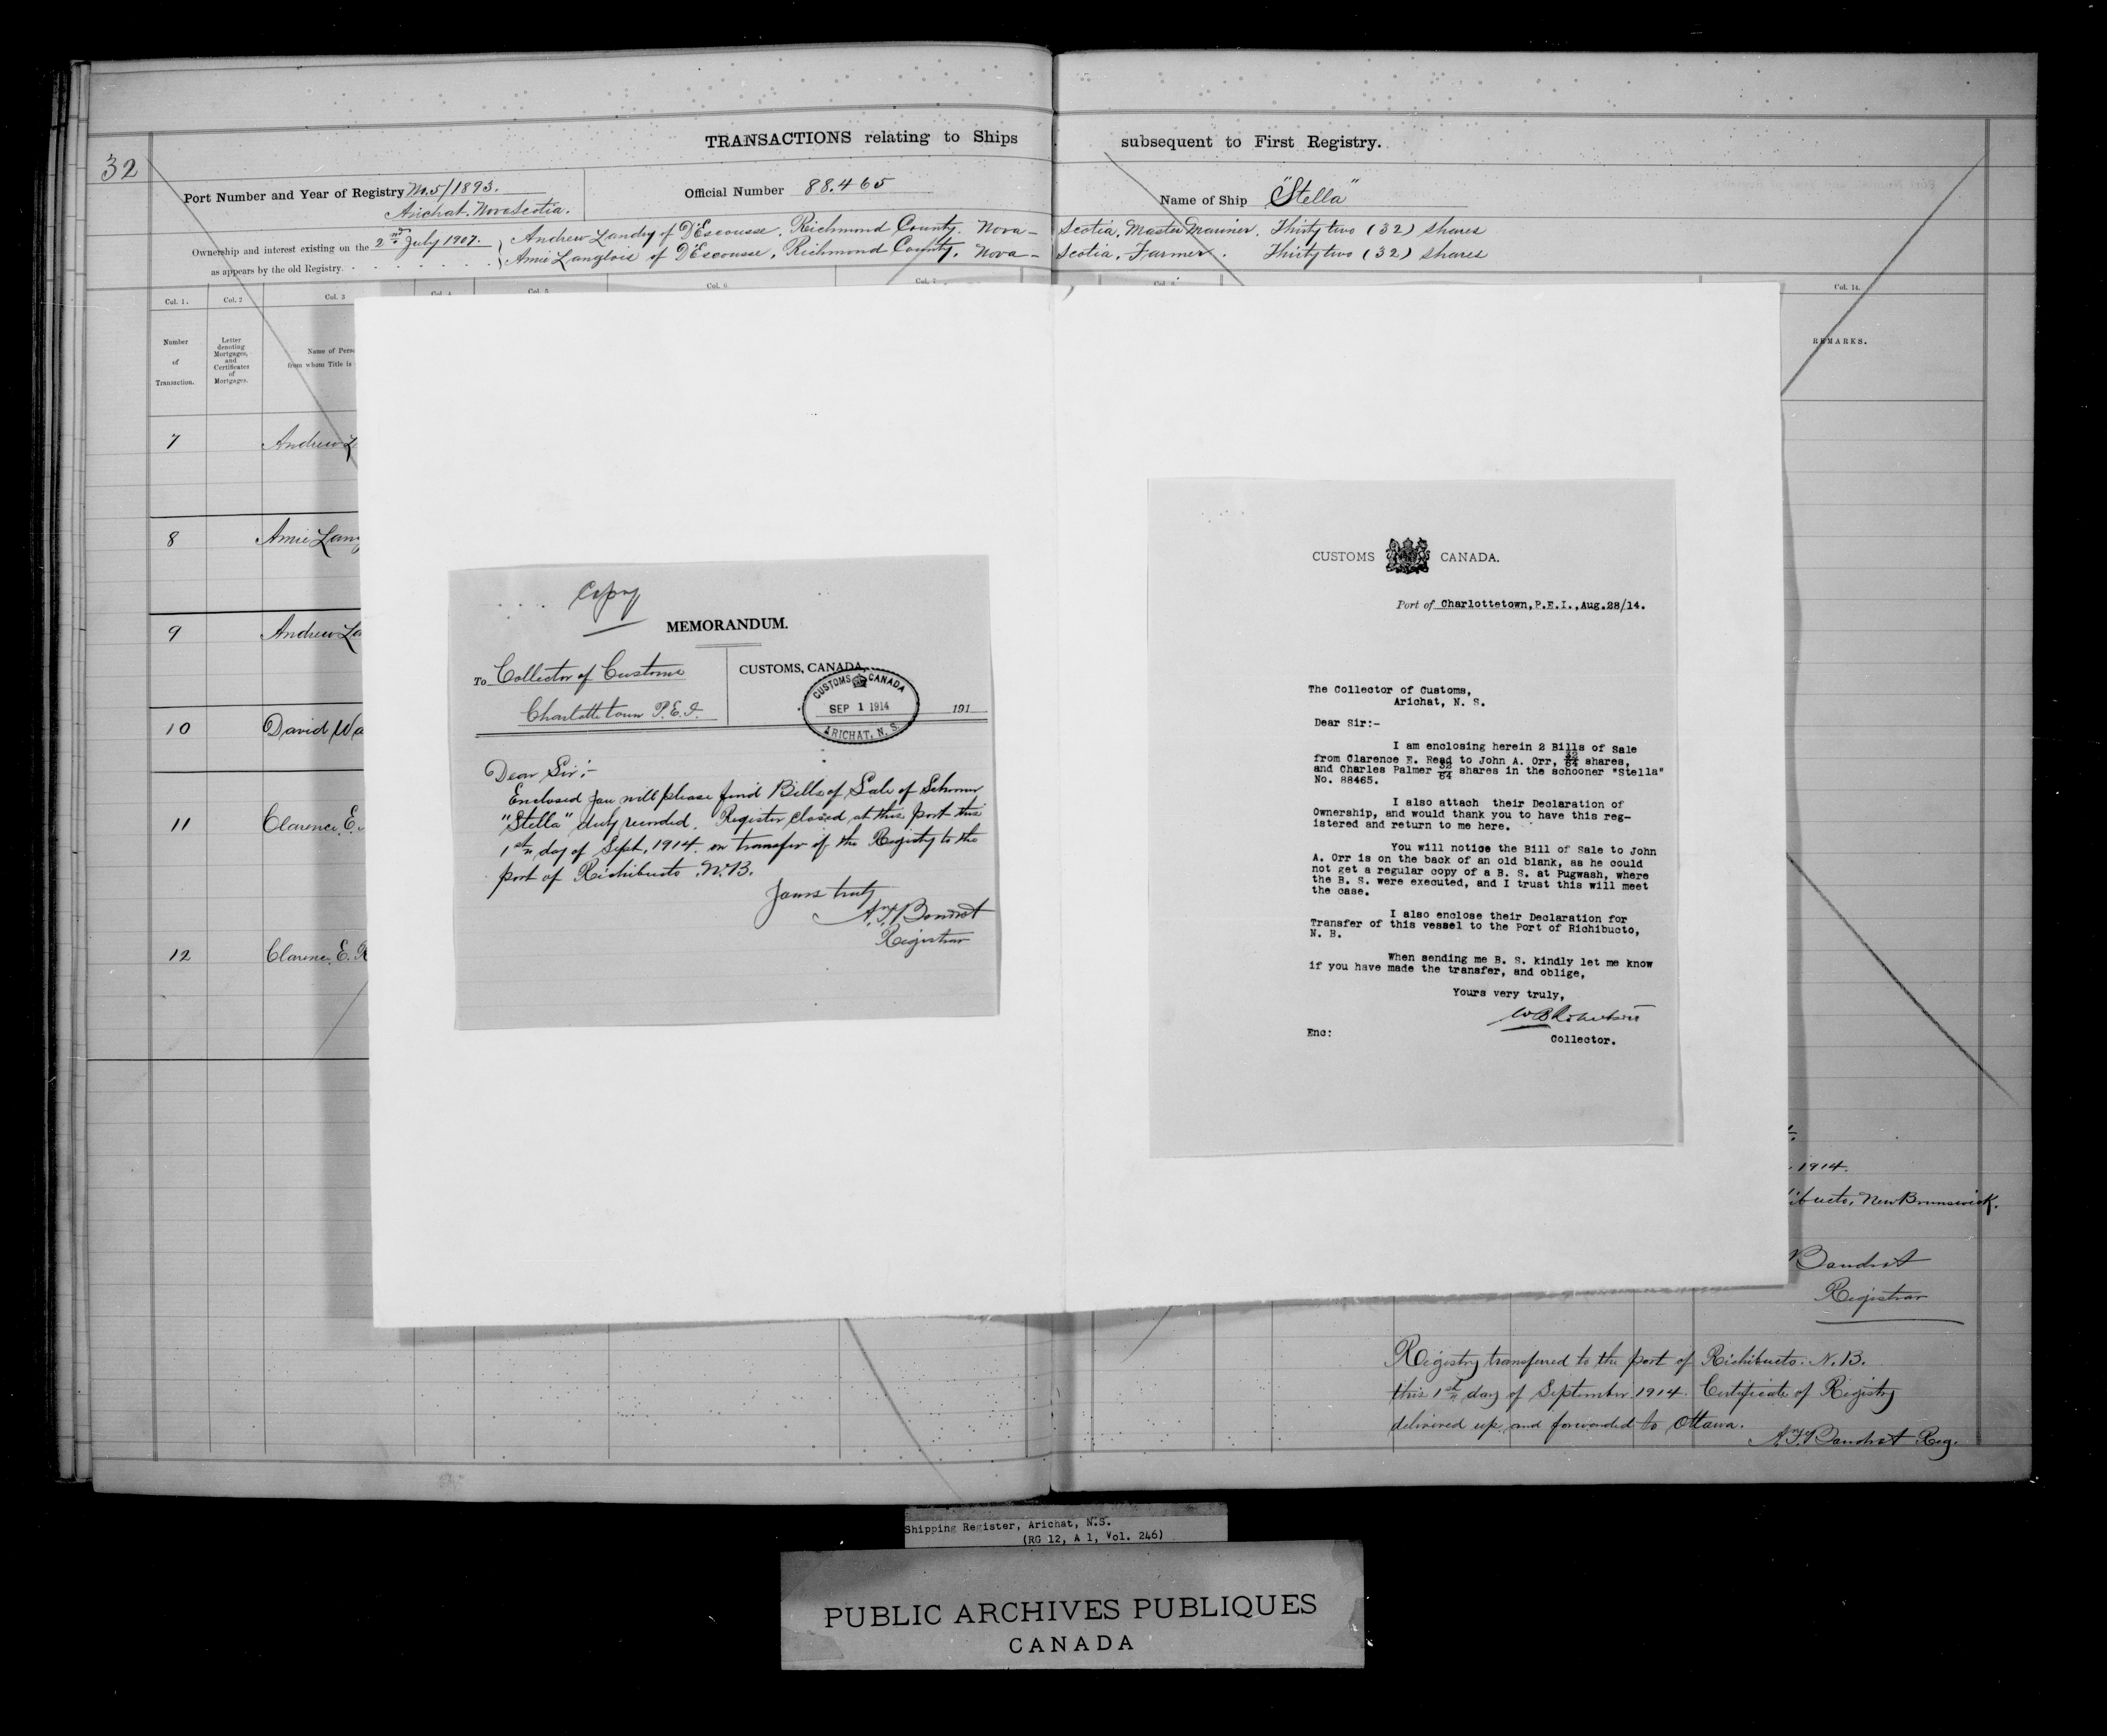 32
TRANSACTIONS relating to Ships subsequent to First Registry.
Port Number and Year of Registry No. 5/1893.
Arichat. Nova Scotia.
Official Number 88.465
Name of Ship "Stella"
Ownership and interest existing on the 2nd July 1907.
as appears by the old Registry.
Andrew Landry of D'Escousse, Richmond County. Nova- Scotia, Master Mariner. Thirty two (32) shares
Amie Langlois of D'Escousse, Richmond County, Nova- Scotia, Farmer. Thirty two (32) shares
Col. 1.
Col. 2
Col. 3
Col. 5
Col. 6
Col. 7
Col. 14.
Number
of
Transaction.
Letter
denoting
Mortgages,
and
Certificates
of
Mortgages.
Name of Pers
from whom Title is
REMARKS.
7 Andrew L
8 Amie Lang
9 Andrew La
10 David Wa
11 Clarence E.
12 Clarence E. R
Copy
MEMORANDUM.
To Collector of Customs
Charlottetown P.E.I.
CUSTOMS, CANADA,
CUSTOMS CANADA
SEP 1 1914
ARICHAT, N. S.
191
Dear Sir:-
Enclosed you will please find Bills of Sale of Schooner
"Stella" duly recorded. Register closed at this port this
1st day of Sept. 1914. on transfer of the Registry to the
port of Richibucto. N.B.
Yours truly
Registrar
CUSTOMS CANADA.
Port of Charlottetown, P.E.I., Aug.28/14.
The Collector of Customs,
Arichat, N. S.
Dear Sir:-
I am enclosing herein 2 Bills of Sale
from Clarence E. Read to John A. Orr, 32/64 shares,
and Charles Palmer 32/64 shares in the schooner "Stella"
No. 88465.
I also attach their Declaration of
Ownership, and would thank you to have this reg-
istered and return to me here.
You will notice the Bill of Sale to John
A. Orr is on the back of an old blank, as he could
not get a regular copy of a B. S. at Pugwash, where
the B. S. were executed, and I trust this will meet
the case.
I also enclose their Declaration for
Transfer of this vessel to the Port of Richibucto,
N. B.
When sending me B. S. kindly let me know
if you have made the transfer, and oblige,
Yours very truly,
Enc:
Collector.
1914.
ibucto, New Brunswick.
Registrar
Registry transferred to the port of Richibucto. N.B.
this 1st day of September 1914. Certificate of Registry
delivered up and forwarded to Ottawa.
Reg.
Shipping Register, Arichat, N.S.
(RG 12, A 1, Vol. 246)
PUBLIC ARCHIVES PUBLIQUES
CANADA